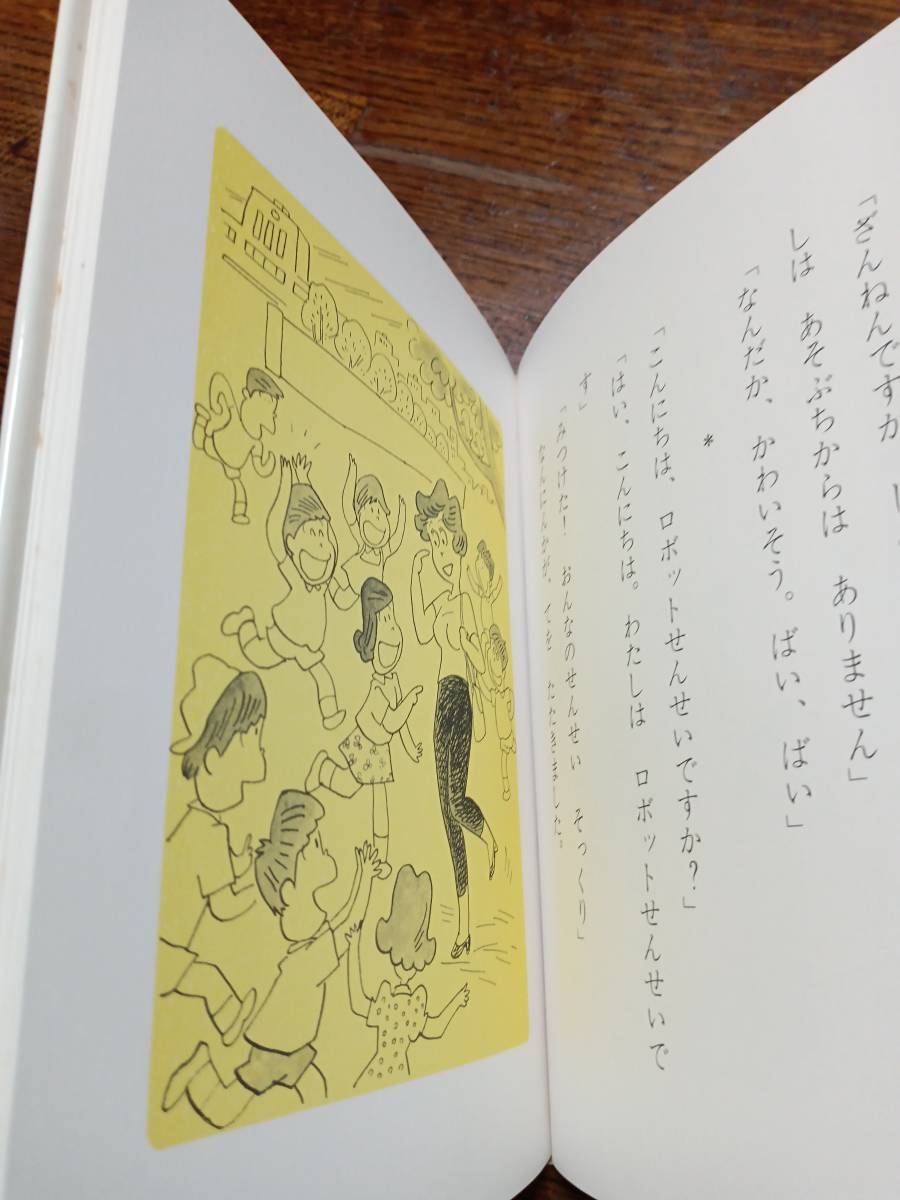 「ざんねんですが
しは　あそぶちからは　ありません」
「なんだか、かわいそう。ばい、ばい」
＊
「こんにちは、ロボットせんせいですか？」
「はい、こんにちは。わたしは　ロボットせんせいで
す」
「みつけた！　おんなのせんせい　そっくり」
なんにんかが、てを　たたきました。